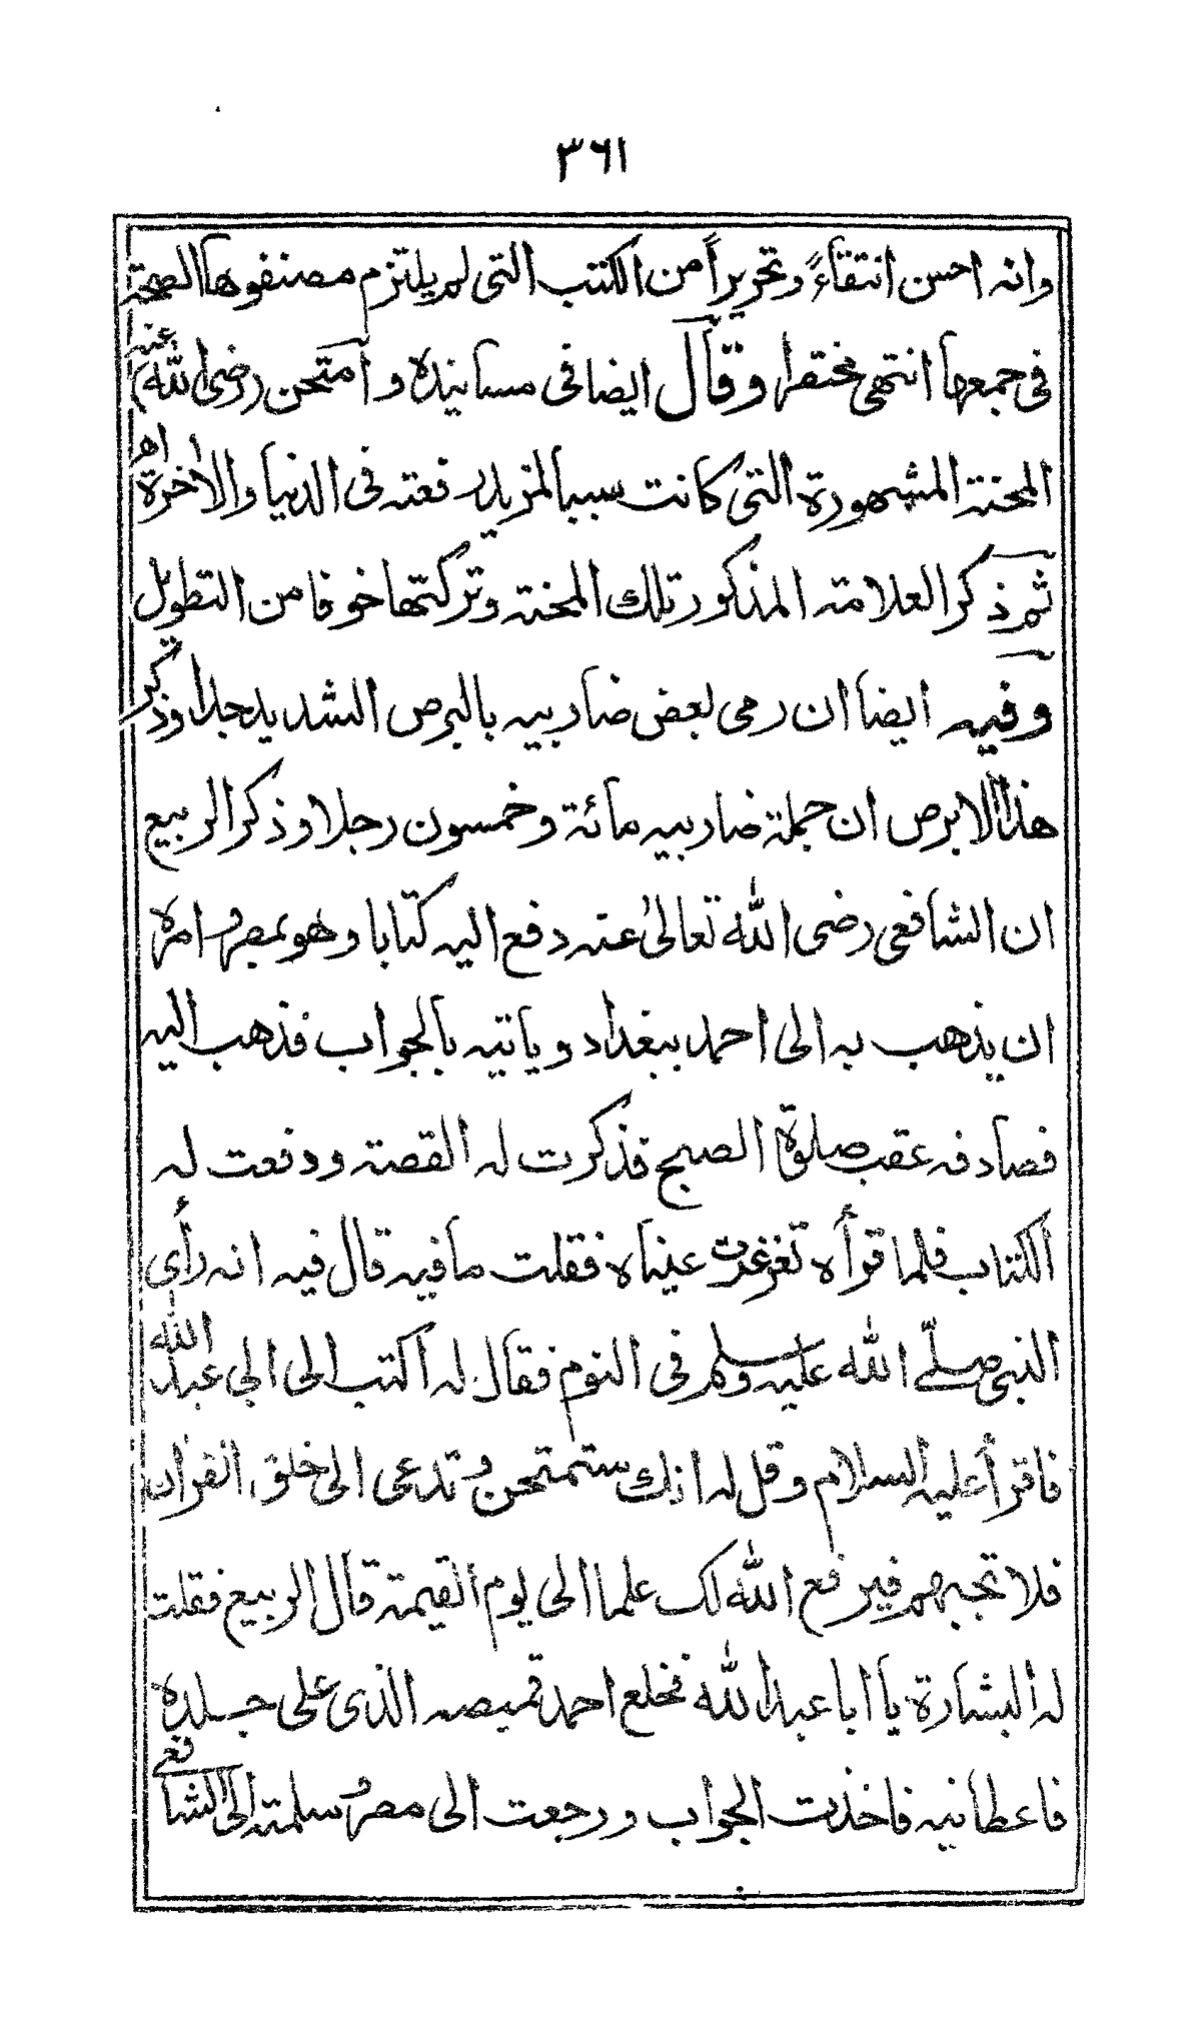 ٣٦١
وانه احسن انتقاءً وتحريراً من الكتب التى لم يلتزم مصنفوها الصحة
فى جمعها انتهى مختصرا وقال ايضا فى مسانيده وامتحن رضى الله عنه
المحنة المشهورة التى كانت سببا لمزيد رفعته فى الدنيا والاخرة اه
ثم ذكر العلامة المذكور تلك المحنة وتركتها خوفا من التطويل
وفيه ايضا ان رمى بعض ضاربيه بالبرص الشديد جدا وذكر
هذا الابرص ان جملة ضاربيه مائة وخمسون رجلا وذكر الربيع
ان الشافعى رضى الله تعالى عنه دفع اليه كتابا وهو بمصر وامره
ان يذهب به الى احمد ببغداد وياتيه بالجواب فذهب اليه
فصادفه عقب صلوة الصبح فذكرت له القصة ودفعت له
الكتاب فلما قرأه تغرغرت عيناه فقلت ما فيه قال فيه انه رأى
النبى صلّى الله عليه وسلم فى النوم فقال له اكتب الى ابى عبد الله
فاقرأ عليه السلام وقل له انك ستمتحن وتدعى الى خلق القران
فلا تجبهم فيرفع الله لك علما الى يوم القيمة قال الربيع فقلت
له البشارة يا ابا عبد الله فخلع احمد قميصه الذى على جسده
فاعطانيه فاخذت الجواب ورجعت الى مصر وسلمته الى الشافعى